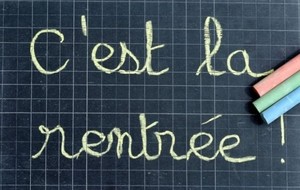 C'est la
rentrée !